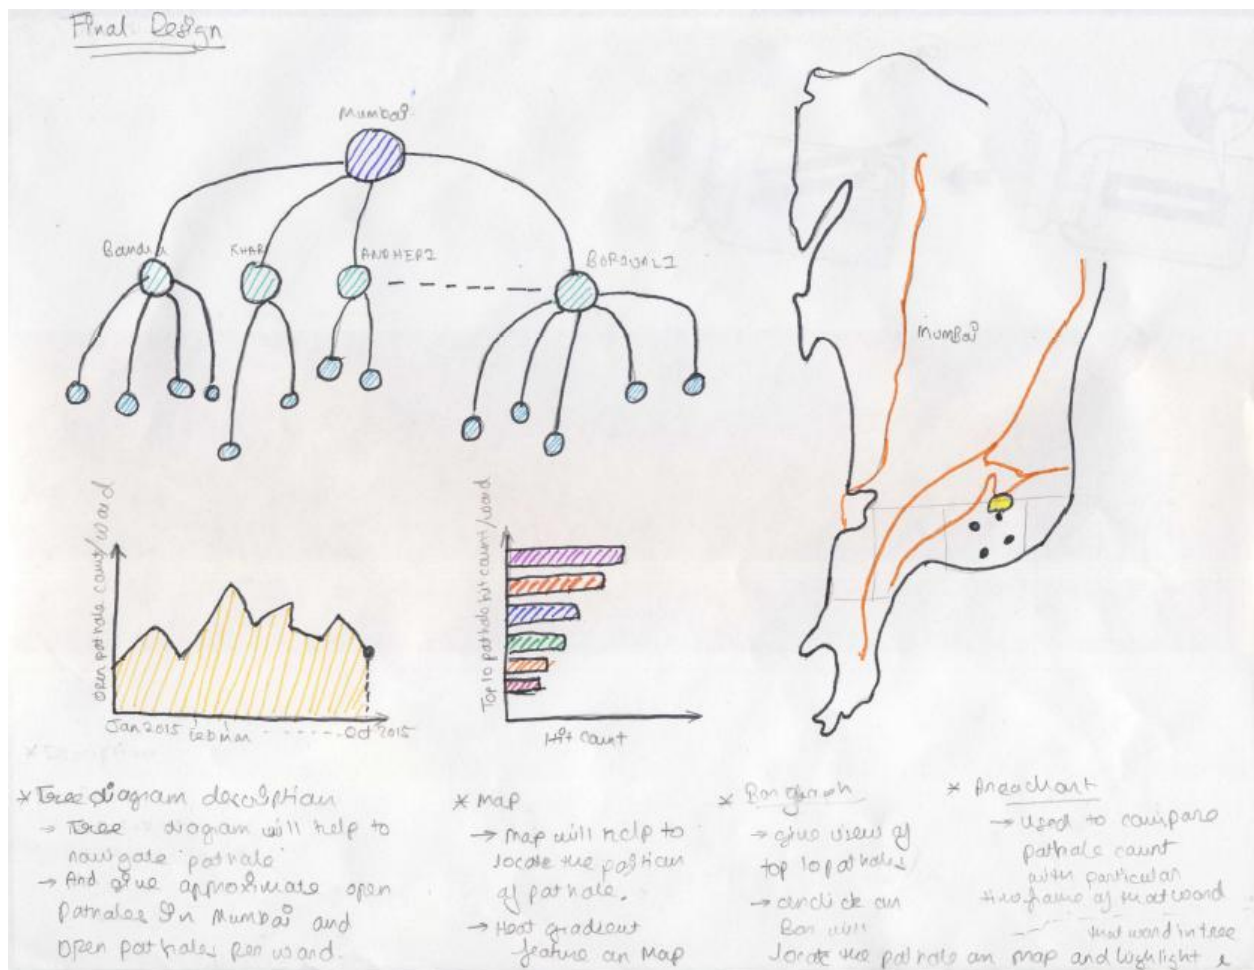 Final Design
Mumbai
Bandra
KHAR
ANDHERI
BORIVALI
Mumbai
Open pathole count/ward
Jan 2015 Feb mar ------ Oct 2015
Top 10 pathole hit count/ward
Hit count
* Tree diagram description
→ Tree diagram will help to
navigate pathole
→ And give approximate open
Patholes In Mumbai and
open patholes per ward.
* Map
→ Map will help to
locate the position
of pathole.
→ Heat gradient
feature on Map
* Bar graph
→ give view of
top 10 patholes
→ onclick on
Bar will
locate the pathole on map and highlight
that ward in tree
* Area chart
→ Used to compare
pathole count
with particular
timeframe of that ward